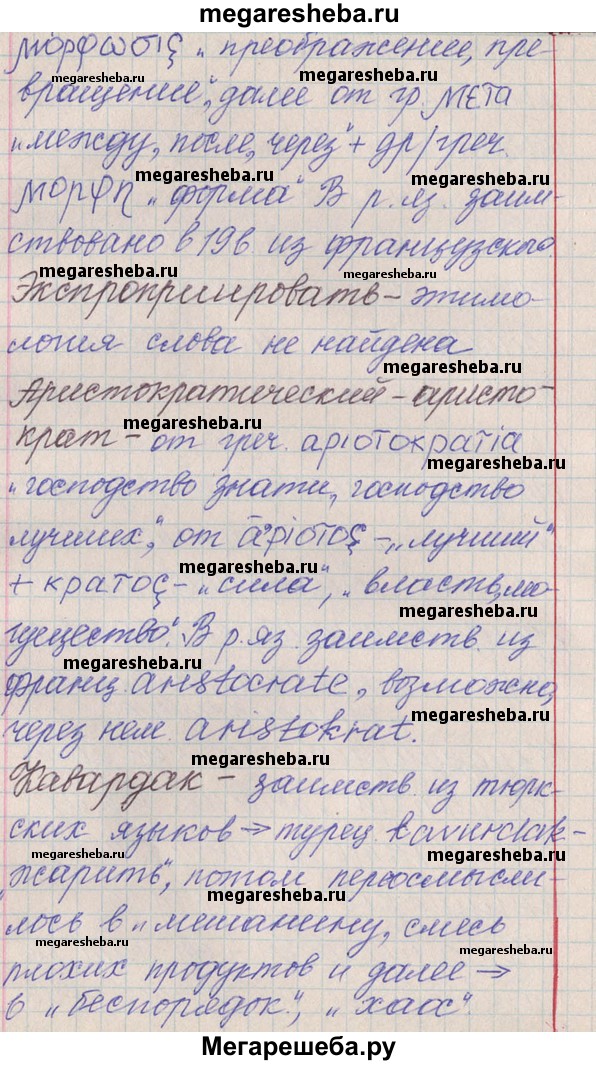 megaresheba.ru
μόρφωσις „преображение, пре-
вращение“, далее от гр. мета
„между, после, через“ + др/греч.
морφη „форма“ В р.яз. заим-
ствовано в 19в из французского.
Экспроприировать – этимо-
логия слова не найдена
Аристократический – аристо-
крат – от греч. αριοτοκρατία
„господство знати, господство
лучших“, от ἄριοτος – „лучший“
+ κρατος – „сила“, „власть, мо-
гущество“. В р.яз. заимств. из
франц. aristocrate, возможно,
через нем. aristokrat.
Кавардак – заимств. из тюрк-
ских языков → турец. kavurdak –
„жарить“, потом переосмысли-
лось в „мешанину, смесь
плохих продуктов и далее →
в „беспорядок“, „хаос“
megaresheba.ru
megaresheba.ru
megaresheba.ru
megaresheba.ru
megaresheba.ru
megaresheba.ru
megaresheba.ru
megaresheba.ru
megaresheba.ru
megaresheba.ru
megaresheba.ru
megaresheba.ru
megaresheba.ru
megaresheba.ru
megaresheba.ru
megaresheba.ru
megaresheba.ru
Мегарешеба.ру